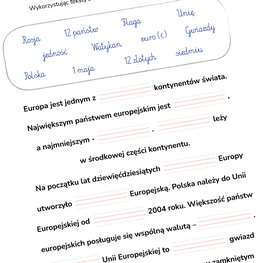 Wykorzystując teksty
Rosja 12 państw Flaga Unię
jedność Watykan euro (€) Gwiazdy
Polska 1 maja 12 złotych siedmiu
Europa jest jednym z kontynentów świata.
Największym państwem europejskim jest .
a najmniejszym – . leży
w środkowej części kontynentu.
Na początku lat dziewięćdziesiątych Europy
utworzyło Europejską. Polska należy do Unii
Europejskiej od 2004 roku. Większość państw
europejskich posługuje się wspólną walutą – .
Unii Europejskiej to gwiazd
w zamkniętym